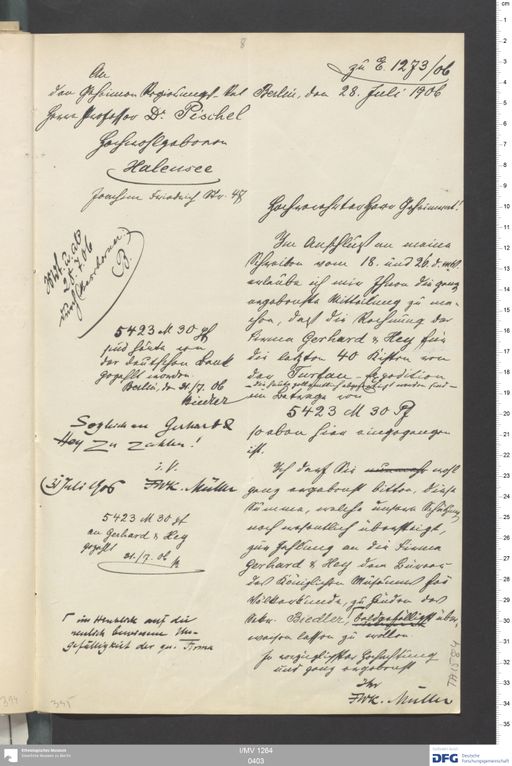 8
zu E. 1273/06
An
den Geheimen Regierungs-Rat
Herrn Professor Dr. Pischel
Hochwohlgeboren
Halensee
Joachim Friedrich Str. 47
Berlin, den 28. Juli 1906
Hochverehrter Herr Geheimrat!
Im Anschluß an meine
Schreiben vom 18. und 26. d. Mts.
erlaube ich mir Ihnen die ganz
ergebenste Mitteilung zu ma-
chen, daß die Rechnung der
Firma Gerhard & Hey für
die letzten 40 Kisten von
der Turfan-Expedition
im Betrage von
5423 M 30 Pf
soeben hier eingegangen
ist.
Ich darf Sie noch
ganz ergebenst bitten, diese
Summe, welche unsere
noch wesentlich übersteigt,
zur Zahlung an die Firma
Gerhard & Hey dem Bureau
des Königlichen Museums für
Völkerkunde, zu Händen des
Biedler, baldgefälligst über-
weisen lassen zu wollen.
In vorzüglichster Hochachtung
und ganz ergebenst
Ihr
FWK. Müller
5423 M 30 pf
sind heute von
der Deutschen Bank
gezahlt worden.
Berlin, den 31/7. 06
Biedler
Sogleich an Gerhard &
Hey zu zahlen!
i. V.
31 Juli 906 FWK. Müller
5423 M 30 pf
an Gerhard & Hey
gezahlt
31/7. 06
im Hinblick auf die
neulich bewiesene Un-
gefälligkeit der gen. Firma
344
345
TA 1584
Ethnologisches Museum
Staatliche Museen zu Berlin
I/MV 1264
0403
DFG Deutsche
Forschungsgemeinschaft